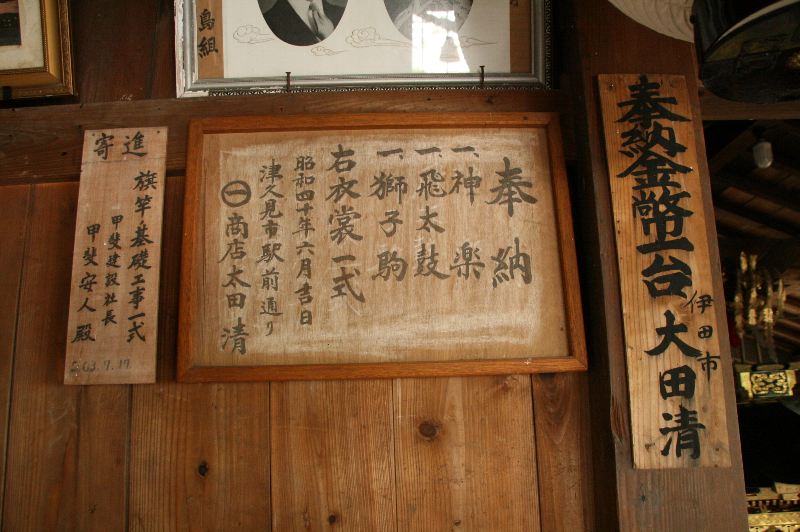 島組
奉納金幣一台
伊田市
大田清
奉納
一、神楽
一、飛太鼓
一、獅子駒
右衣裳一式
昭和四十年六月吉日
津久見市駅前通り
㊀商店太田清
寄進
旗竿基礎工事一式
甲斐建設社長
甲斐安人殿
S63.7.17